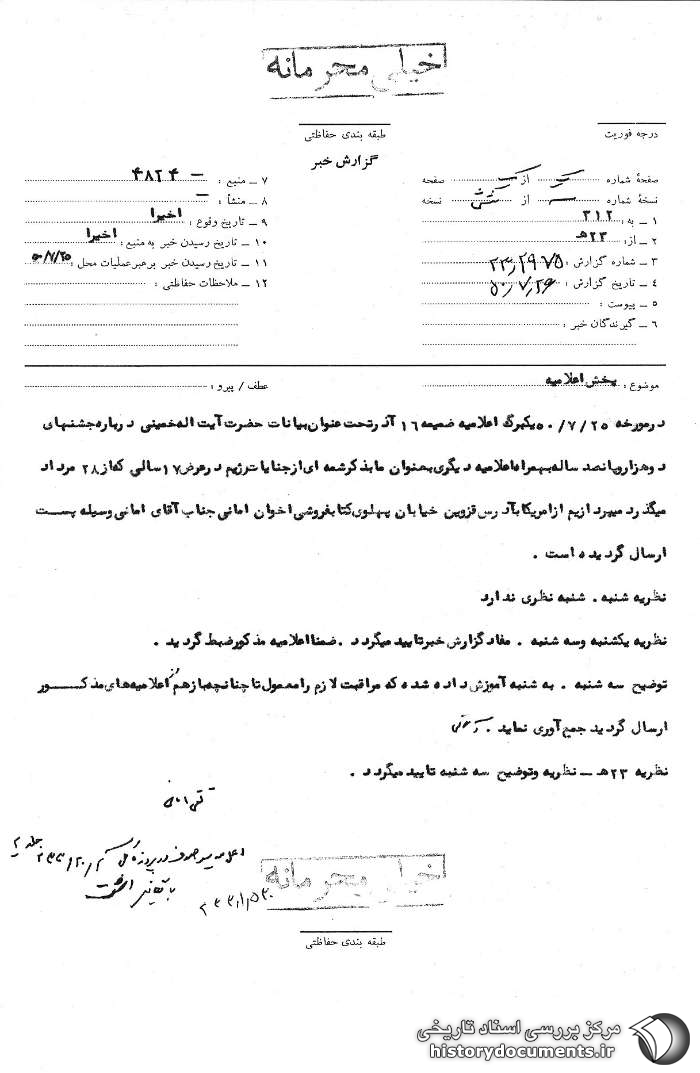 خیلی محرمانه
طبقه بندی حفاظتی
درجه فوریت
گزارش خبر
صفحهٔ شماره یک از یک صفحه
نسخهٔ شماره از شش نسخه
۱ ـ به : ۳۱۲
۲ ـ از : ۲۳ﻫ
۳ ـ شماره گزارش : ۲۳٫۲۹۷۵
۴ ـ تاریخ گزارش : ۵۰٫۷٫۲۶
۵ ـ پیوست :
۶ ـ گیرندگان خبر :
۷ ـ منبع : ۴۸۲۴ ـ
۸ ـ منشأ : ـ
۹ ـ تاریخ وقوع : اخیرا
۱۰ ـ تاریخ رسیدن خبر به منبع : اخیرا
۱۱ ـ تاریخ رسیدن خبر برهبر عملیات محل : ۵۰/۷/۲۵
۱۲ ـ ملاحظات حفاظتی :
موضوع : پخش اعلامیه
عطف / پیرو :
درمورخه ۵۰/۷/۲۵ یکبرگ اعلامیه ضمیمه ۱۶ آذر تحت عنوان بیانات حضرت آیت اله خمینی درباره جشنهای
دوهزار و پانصد ساله بهمراه اعلامیه دیگری بعنوان ما بذکر شمه ای از جنایات رژیم در عرض ۱۷ سالی که از ۲۸ مرداد
میگذرد میپردازیم از امریکا بآدرس قزوین خیابان پهلوی کتابفروشی اخوان امانی جناب آقای امانی وسیله پست
ارسال گردیده است .
نظریه شنبه . شنبه نظری ندارد
نظریه یکشنبه وسه شنبه . مفاد گزارش خبر تایید میگردد . ضمنا اعلامیه مذکور ضبط گردید .
توضیح سه شنبه . به شنبه آموزش داده شده که مراقبت لازم را معمول تا چنانچه باز هم از اعلامیه های مذکور
ارسال گردید جمع آوری نماید .
نظریه ۲۳ﻫ ـ نظریه وتوضیح سه شنبه تایید میگردد .
خیلی محرمانه
طبقه بندی حفاظتی
مرکز بررسی اسناد تاریخی
historydocuments.ir